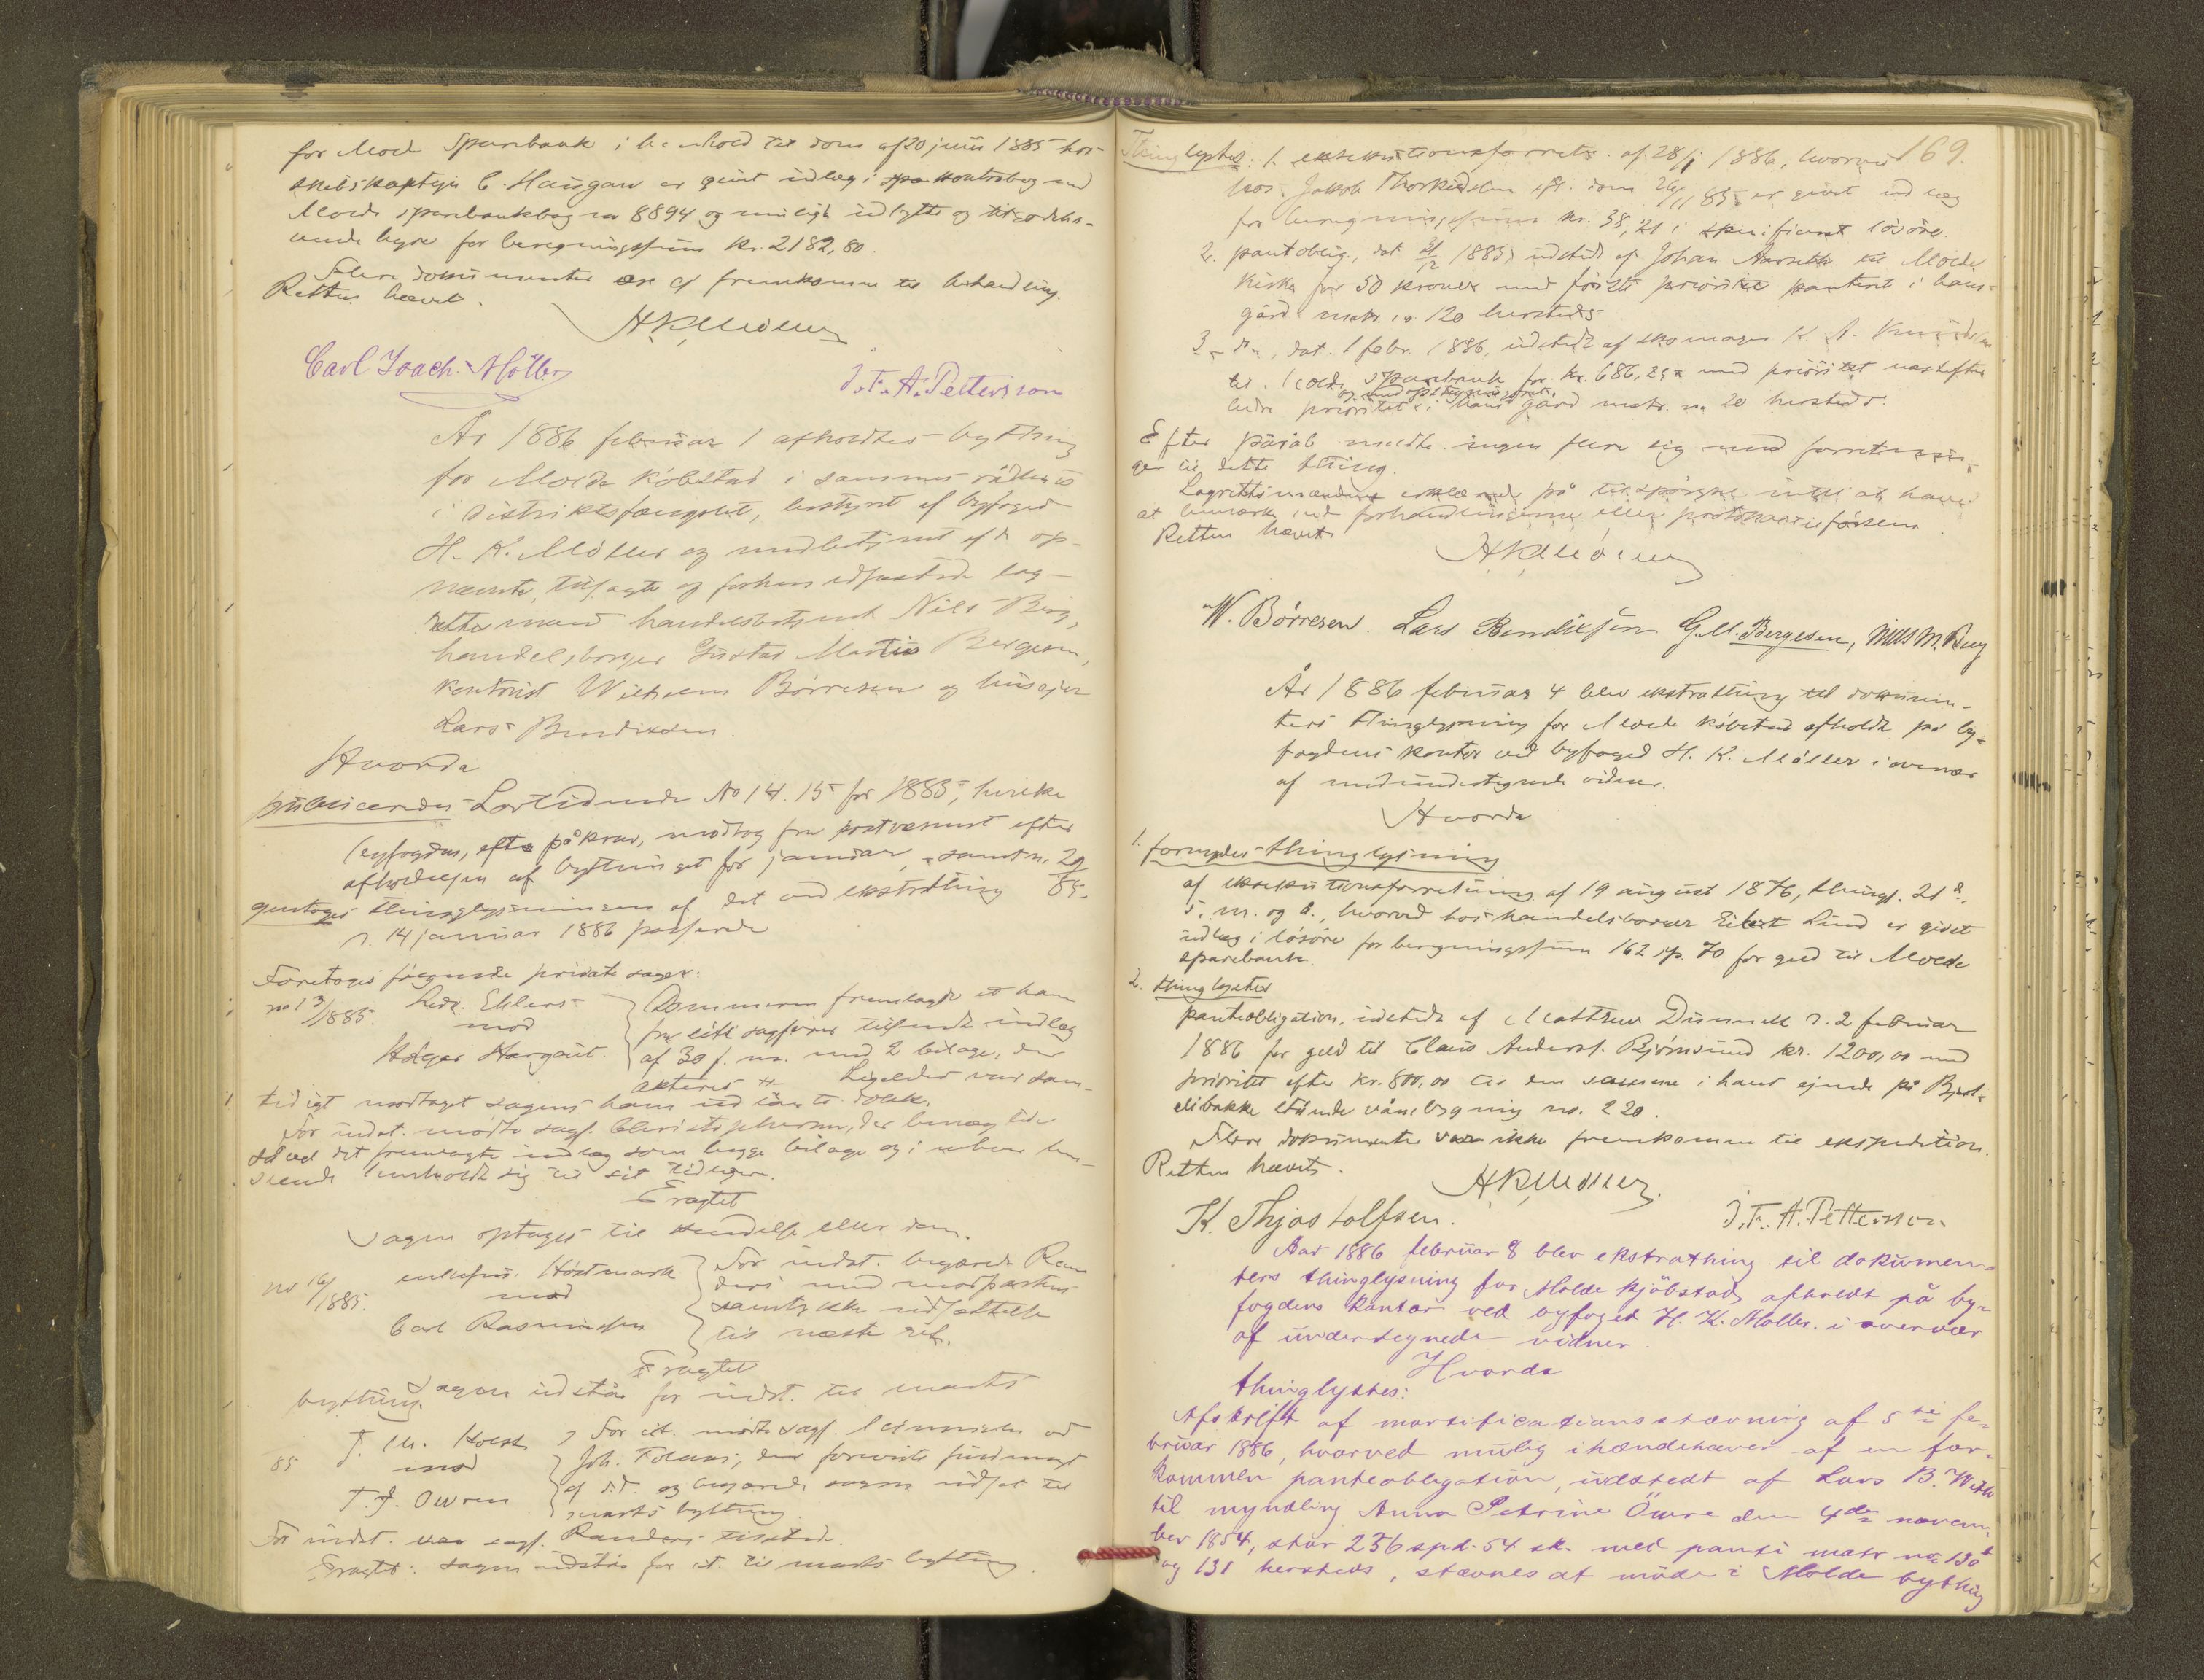 for Molde Sparebank i henhold til dom af 20 juni 1885 hos
skibskaptejn C. Haugan er givet udlæg i kontrabog med
Molde sparebankbog no 8894 og muligt indlytte og tilgodeha-
vende hyre for beregningssum kr. 2182,80.
Flere dokumenter ere ej fremkomne til behandling.
Retten hævet.
H.K.Møller
Carl Joach. Möller
J. F. A. Pettersson
År 1886 februar 1 afholdtes bything
for Molde købstad i sammes rådhus
i distriktsfængslet, bestyret af byfoged
H. K. Møller og medbetjent af de op-
nævnte, tilsagte og forhen edfæstede lag-
rettemænd handelsbetjent Nils Bug,
handelsborger Gustav Martin Bergesen,
kontorist Wilhelm Börresen og husejer
Lars Bendixsen.
Hvorda
publiceredes Lovtidende No 14. 15 for 1885, hvilke
byfogden, efter påkrav, modtog fra postvæsenet efter
afholdelsen af bythinget for januar, samt n. 29/85.
gentoges thinglysningen af det ved ekstrathing
d. 14 januar 1886 passerede
Foretoges følgende private sager:
no 13/1885. Ludv. Ehlers
mod
Holger Hargaut.
Dommeren fremlagde et ham
fra citi sagfører tilsendt indlæg
af 30 f. m. med 2 bilage, der
akteres # Ligeledes var sam-
tidigt modtaget sagens ham udlånte dokk.
For indst. mødte sagf. Christophersen, der benægtede
såvel det fremlagte indlæg som begge bilage og i enhver hen-
seende henholdt sig til sit tidligere.
Eragtet
Sagen optages til kendelse eller dom.
no 16/1885. enkefru Höstmark
mod
Carl Rasmussen
For indst. begærede Ran
ders med modpartens
samtykke udsættelse
til næste ret.
Eragtet
Sagen udstår for indst. til marts
bything.
85 J. M. Holst
mod
T. J. Owren
For cit. mødte sagf.
Joh. Foldass, der foreviste fuldmagt
af d.d. og begærede sagen udsat til
marts bything.
For indst. var sagf. Randers tilstede.
Eragtet: sagen udstår for cit. til marts bything.
169.
Thinglystes: 1. eksekutionsforretn. af 28/1 1886, hvorved
hos Jakob Thorkildsen efl. dom 26/11 85 er givet udlæg
for beregningssum kr. 38,21 i specificeret løsøre.
2. pantoblig., dat 21/12 1885 udstedt af Johan Aarseth til Molde
kirke for 50 kroner med første prioritet panteret i hans
gård matr. no 120 hersteds
3. Do, dat. 1 febr. 1886, udstedt af skomager K. A. Knudsen
til Molde sparebank for kr. 686,25 med prioritet næstefter
og med opstigningsret
ledn prioriteter i hans gård matr. no 20 hersteds.
Efter påråb meldte ingen flere sig med forretnin-
ger til dette thing.
Lagrettemændene erklærede på tilspørgsel intet at have
at bemærke ved forhandlingerne eller protokoltilførselen.
Retten hævet.
H.K.Møller
W. Börresen. Lars Bendixsen G. M. Bergesen, Nils M. Bug
År 1886 februar 4 blev ekstrathing til dokumen-
ters thinglysning for Molde købstad afholdt på by-
fogdens kontor ved byfoged H. K. Møller i overvær
af medundertegnede vidner.
Hvorda
1. fornyedes thinglysning
af eksekutionsforretning af 19 august 1876, thingl. 21 d.,
s. m. og å., hvorved hos handelsborger Eilert Lund er givet
udlæg i løsöre for beregningssum 162 sp. 70 for gæld til Molde
sparebank.
2. thinglystes
panteobligation, udstedt af Matthew Dunnell d. 2 februar
1886 for gæld til Claus Anders. Bjørnsund kr. 1200,00 med
prioritet efter kr. 800,00 til den samme i hans ejende på Bjrsl-
elibakke stående våningsbygning no. 220.
Flere dokumenter var ikke fremkomne til ekspedition.
Retten hævet.
H.K.Møller.
K. Thjostolfsen.
J. F. A. Pettersson
Aar 1886 februar 8 blev ekstrathing til dokumen-
ters thinglysning for Molde kjöbstad afholdt på by-
fogdens kantor ved byfoged H. K. Møller. i overvær
af undertegnede vidner.
Hvorda
thinglystes:
Afskrift af mortificationsstævning af 5te fe-
bruar 1886, hvorved mulig ihændehaver af en for-
kommen panteobligation, udstedt af Lars B. With
til myndling Anna Petrine Öwre den 4de novem-
ber 1854, stor 236 spd. 54 sk. med pant i matr no 130b
og 131 hersteds, stævnes at møde i Molde bything